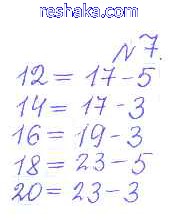 reshaka.com
№7.
12 = 17-5
14 = 17-3
16 = 19-3
18 = 23-5
20 = 23-3